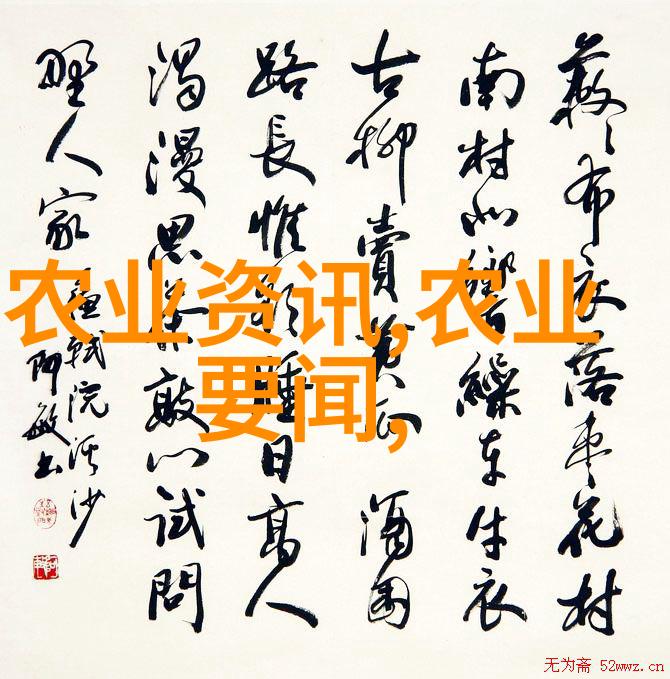 农业资讯,农业
要闻,
蔌〻布衣落枣花村
南村北響繰车牛衣
古柳賣黄瓜酒困
路長惟欲睡日高人
渴漫思茶敲门試問
野人家
軾浣溪沙
敏书
无为斋 52wwz.cn